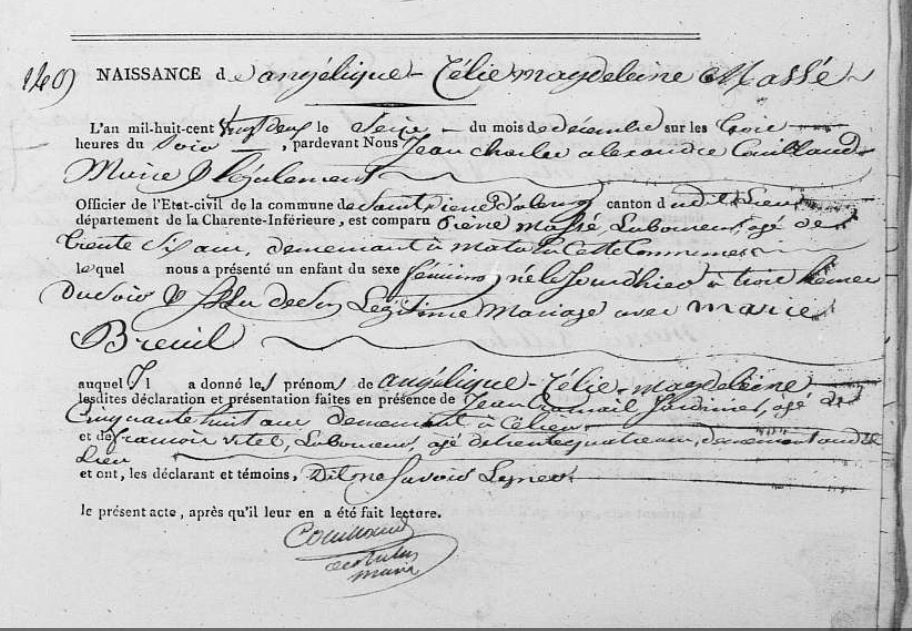 149 NAISSANCE de angélique-Célie magdeleine Massé
L'an mil-huit-cent vingt deux le Seize du mois de décembre sur les trois
heures du Soir, pardevant Nous Jean Charles alexandre Couillaud
Maire
Officier de l'Etat-civil de la commune de Saint pierre d'oleron canton dudit Lieu
département de la Charente-Inférieure, est comparu Pierre Massé, Laboureur, agé de
trente Six ans, demeurant à Matha En Cette Commune
lequel nous a présenté un enfant du sexe féminin, né le Jourdhier à trois heures
Du Soir de Son Légitime Mariage avec Marie
Breuil
auquel Il a donné les prénoms de angélique-Célie-magdeleine
lesdites déclaration et présentation faites en présence de Jean Jardinier, agé de
Cinquante huit ans demeurant à
et de francois vitet, Laboureur, agé de trente quatre ans, demeurant audit
Lieu
et ont, les déclarant et témoins, Dit ne Savoir Signer
le présent acte, après qu'il leur en a été fait lecture.
Couillaud
maire